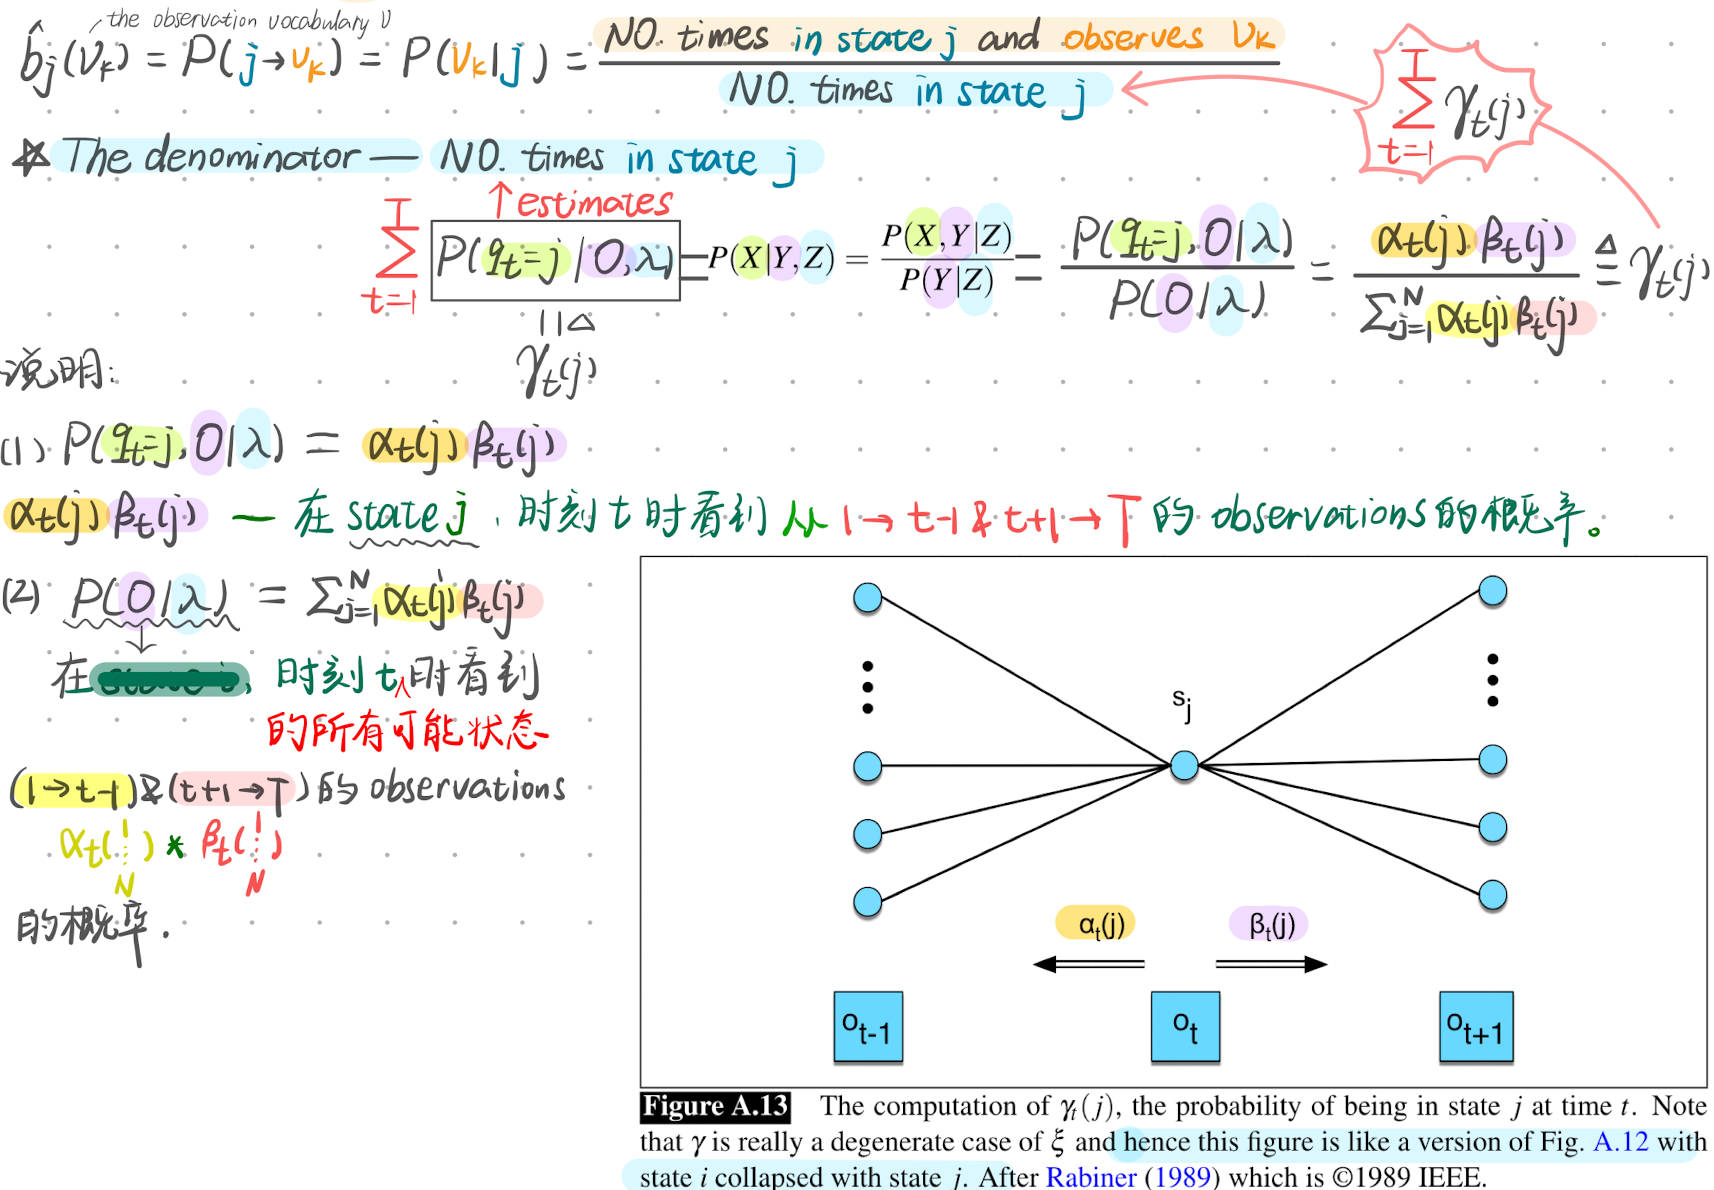 the observation vocabulary V
b̂j(Vk) = P(j→Vk) = P(Vk|j) = NO. times in state j and observes Vk / NO. times in state j
∑_{t=1}^{T} γt(j)
☆ The denominator — NO. times in state j
↑ estimates
∑_{t=1}^{T} P(qt=j | O, λ) = P(X|Y, Z) = P(X,Y|Z) / P(Y|Z) = P(qt=j, O|λ) / P(O|λ) = αt(j) βt(j) / ∑_{j=1}^{N} αt(j) βt(j) ≜ γt(j)
||△
γt(j)
说明:
(1). P(qt=j, O|λ) = αt(j) βt(j)
αt(j) βt(j) — 在 state j, 时刻 t 时看到 从 1→t-1 & t+1→T 的 observations 的概率。
(2) P(O|λ) = ∑_{j=1}^{N} αt(j) βt(j)
↓
在 、时刻 t 时看到
的所有可能状态
(1→t-1)&(t+1→T) 的 observations
αt(1⋮N) * βt(1⋮N)
的概率.
sj
αt(j) βt(j)
ot-1 ot ot+1
Figure A.13 The computation of γt(j), the probability of being in state j at time t. Note
that γ is really a degenerate case of ξ and hence this figure is like a version of Fig. A.12 with
state i collapsed with state j. After Rabiner (1989) which is ©1989 IEEE.